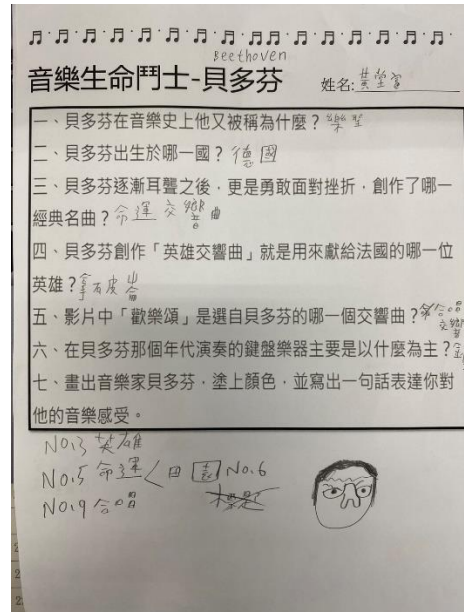 Beethoven
音樂生命鬥士-貝多芬 姓名:黃
一、貝多芬在音樂史上他又被稱為什麼？樂聖
二、貝多芬出生於哪一國？德國
三、貝多芬逐漸耳聾之後，更是勇敢面對挫折，創作了哪一
經典名曲？命運交響曲
四、貝多芬創作「英雄交響曲」就是用來獻給法國的哪一位
英雄？拿破崙
五、影片中「歡樂頌」是選自貝多芬的哪一個交響曲？合唱交響
六、在貝多芬那個年代演奏的鍵盤樂器主要是以什麼為主？
七、畫出音樂家貝多芬，塗上顏色，並寫出一句話表達你對
他的音樂感受。
No.3 英雄
No.5 命運 田園 No.6
No.9 合唱